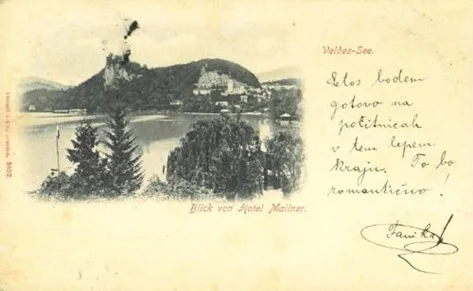 Veldes-See.
Letos bodem
gotovo na
počitnicah
v tem lepem
kraju. To bo
romantično!
Fanika
Blick von Hotel Mallner.